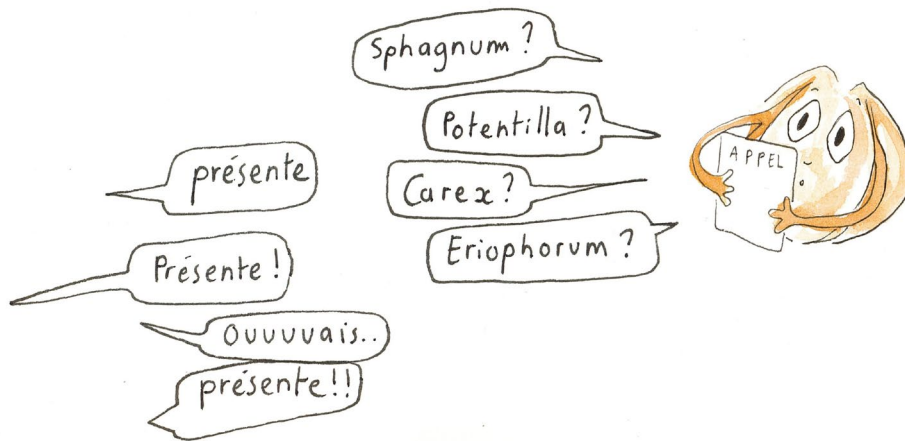 Sphagnum ?
Potentilla ?
Carex ?
Eriophorum ?
APPEL
présente
Présente !
Ouuuuais..
présente!!